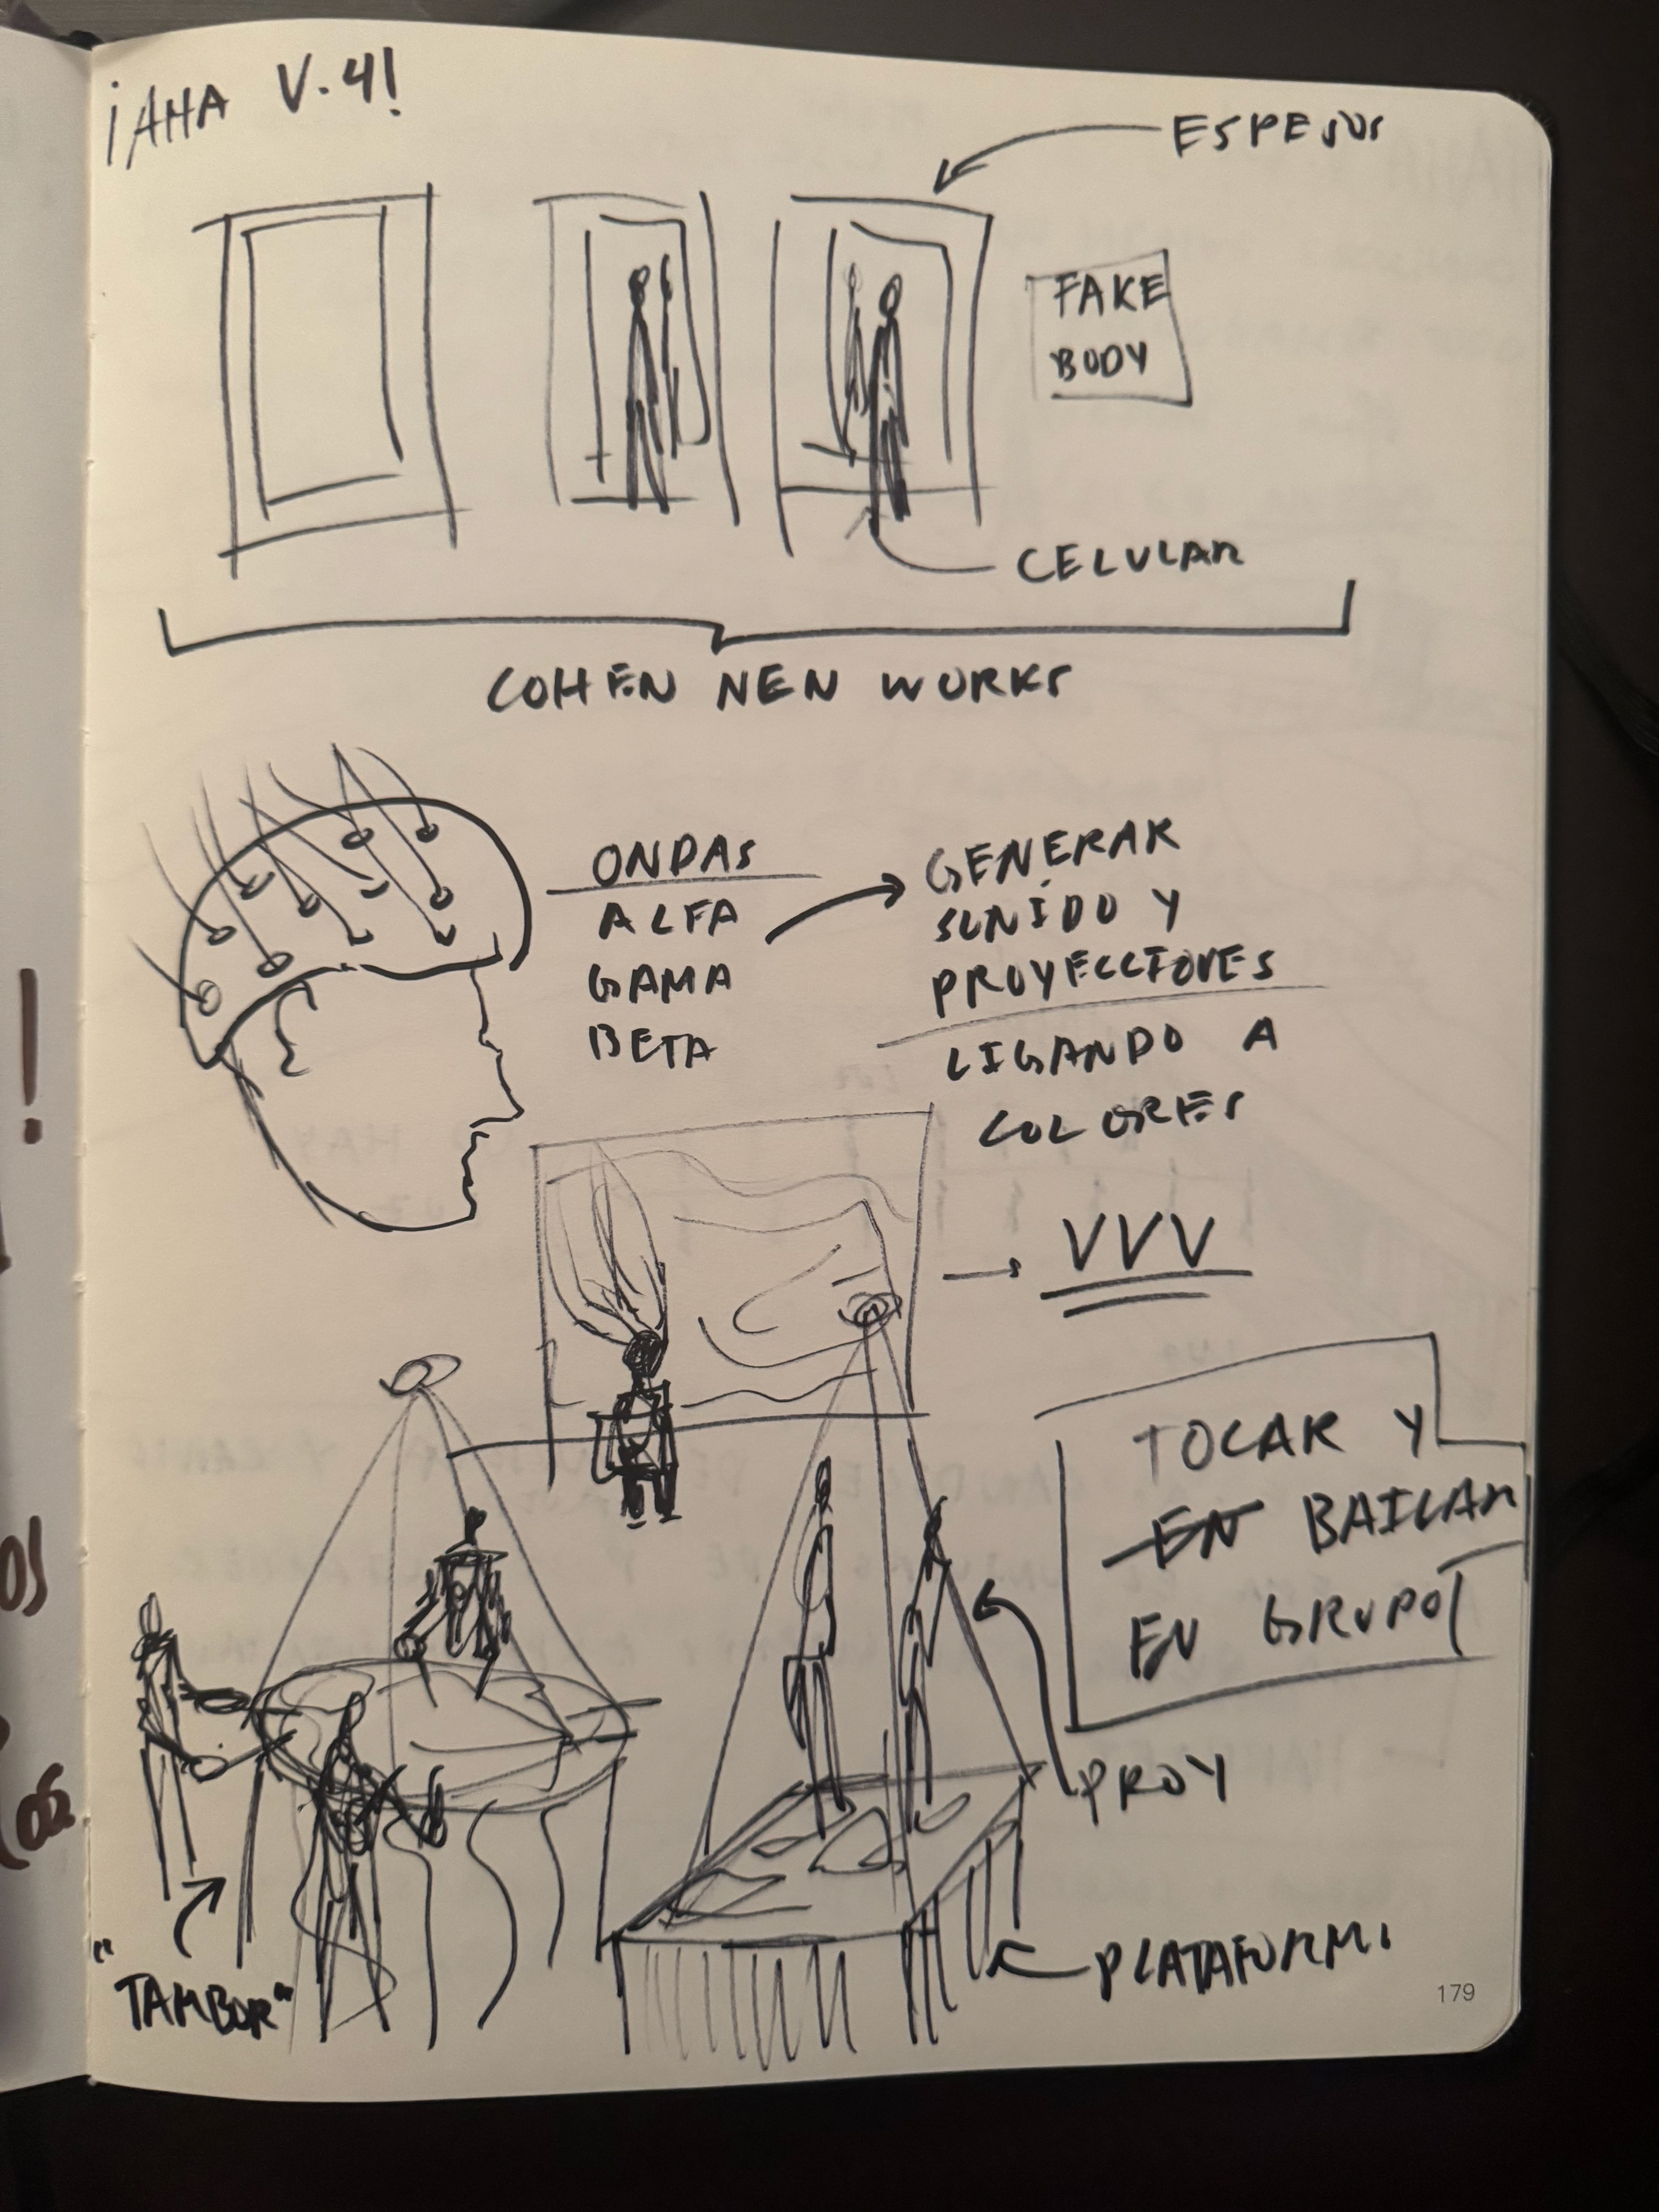 ¡AHA V.4!
ESPEJOS
FAKE
BODY
CELULAR
COHEN NEW WORKS
ONDAS
ALFA
GAMA
BETA
GENERAR
SONIDO Y
PROYECCIONES
LIGANDO A
COLORES
VVV
TOCAR Y
EN BAILAR
EN GRUPO
PROY
"TAMBOR"
PLATAFORMA
179